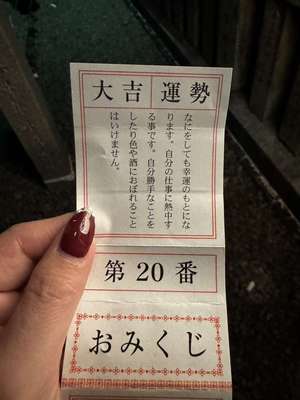 大吉 運勢
なにをしても幸運のもとにな
ります。自分の仕事に熱中す
る事です。自分勝手なことを
したり色や酒におぼれること
はいけません。
第20番
おみくじ